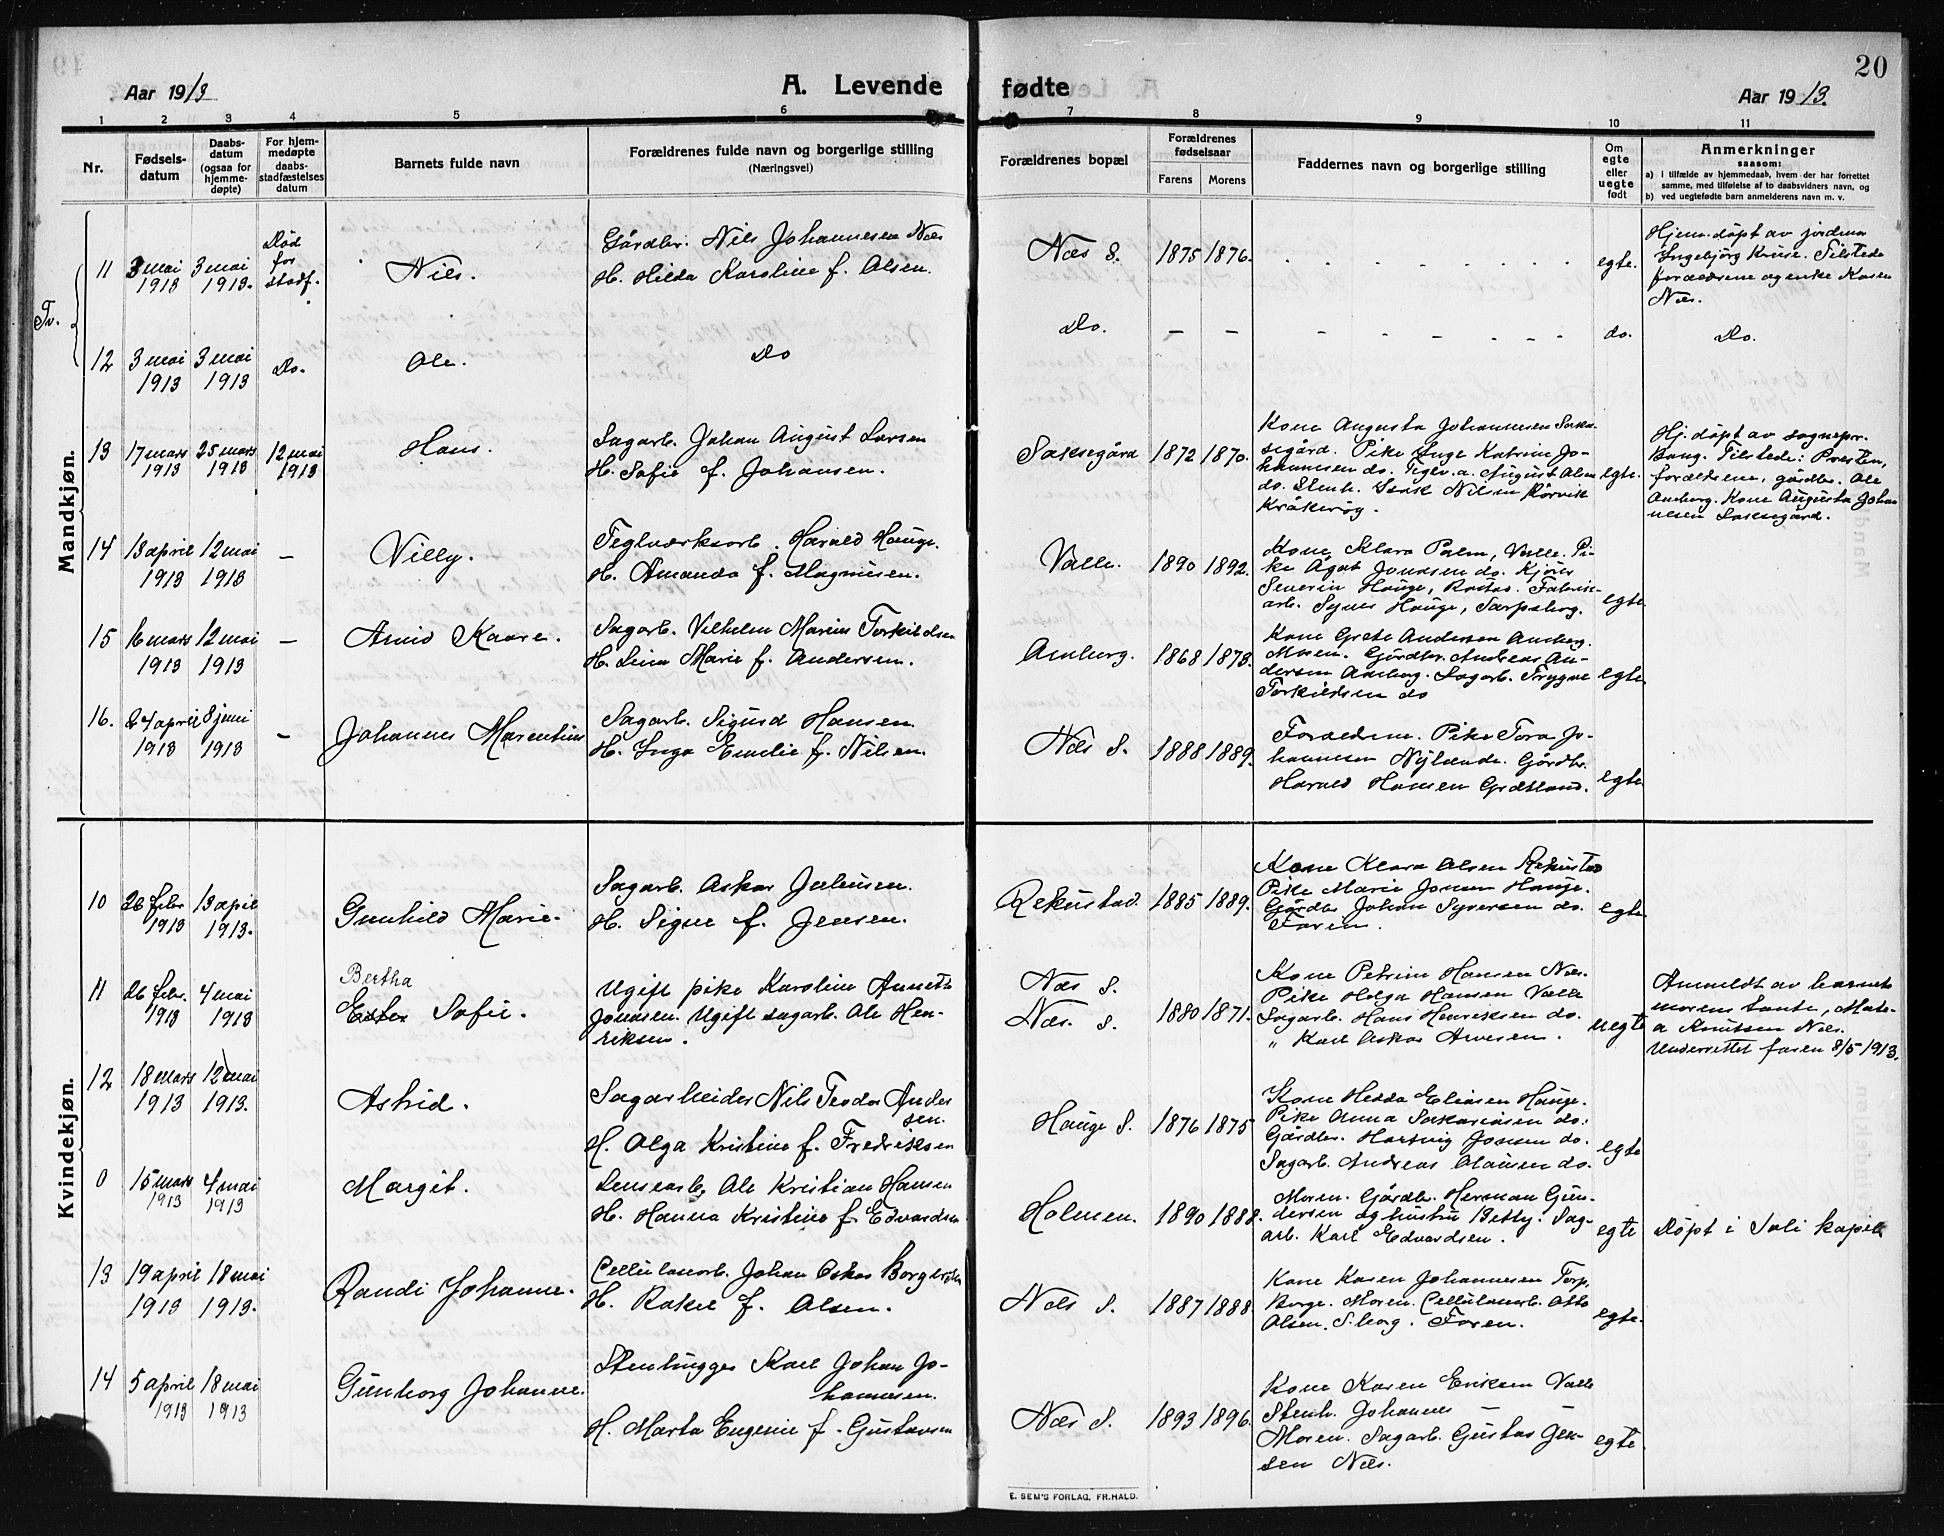 19
20
Aar 1913
A. Levende fødte
Aar 1913.
1 2 3 4 5 6 7 8 9 10 11
Nr.
Fødsels-
datum
Daabs-
datum
(ogsaa for
hjemme-
døpte)
For hjem-
medøpte
daabs-
stadfæstelses
datum
Barnets fulde navn
Forældrenes fulde navn og borgerlige stilling
(Næringsvei)
Forældrenes bopæl
Forældrenes
fødselsaar
Farens Morens
Faddernes navn og borgerlige stilling
Om
egte
eller
uegte
født
Anmerkninger
saasom:
a) i tilfælde av hjemmedaab, hvem der har forrettet
samme, med tilføielse af to daabsvidners navn, og
b) ved uegtefødte barn anmelderens navn m. v.
Mandkjøn.
Tv.
11
3 mai
1913
3 mai
1913.
Død
før
stadf.
Nils.
Gårdbr. Nils Johannesen Næs
H. Hilda Karoline f. Olsen.
Næs S.
1875 1876.
egte.
Hjem. døpt av jordmor
Ingebjørg Kruse. Tilstede
forældrene og enke Karen
Næs.
12
3 mai
1913
3 mai
1913
Do.
Ole.
Do
Do.
do.
Do.
13
17 mars
1913
25 mars
1913
12 mai
1913
Hans.
Sagarb. Johan August Larsen
H. Sofie f. Johansen.
Saksegård
1872 1870.
Kone Augusta Johannesen Sakse-
segård. Pike Inga Katrine Jo-
hannesen do. Teglv.a. August Olsen
do. Stenh. Isak Nilsen Rörvik
Kråkerøy.
egte.
Hj. døpt av sognepr.
Bang. Tilstede: Presten,
forældrene, gårdbr. Ole
Omberg. Kone Augusta Johan
nesen Saksegård.
14
13 april
1913
12 mai
1913
—
Villy.
Teglverksarb. Harald Hauge.
H. Amanda f. Magnusen.
Valle.
1890 1892.
Kone Klara Palm, Valle. Pi-
ke Agot Jonassen do. Kjører
Severin Hauge, Rostad. Fabrik-
arb. Syver Hauge, Sarpsborg.
egte
15
16 mars
1913
12 mai
1913
—
Arvid Kaare.
Sagarb. Vilhelm Marius Torkildsen
H. Lina Marie f. Andersen.
Omberg.
1868 1873.
Kone Grete Andersen Omberg.
Moren. Gårdbr. Andreas An-
dersen Omberg. Sagarb. Trygve
Torkildsen do
egte.
16.
24 april
1913
8 juni
1913
—
Johannes Marentius
Sagarb. Sigurd Hansen
H. Inga Emelie f. Nilsen.
Næs S.
1888 1889.
Forældrene. Pike Tora Jo-
hannesen Nylænde. Gårdbr.
Harald Hansen Grætland.
egte.
Kvindekjøn.
10
26 febr
1913
13 april
1913.
Gunhild Marie.
Sagarb. Oskar Juliusen.
H. Signe f. Jensen.
Rekustad.
1885 1889.
Kone Klara Olsen Rekustad
Pike Marie Jonsen Hauge.
Gårdbr Johan Syversen do.
Faren.
egte
11
26 febr.
1913
4 mai
1913
Bertha
Ester Sofie.
Ugift pike Karoline Annette
Jonsen. Ugift sagarb. Ole Hen-
riksen.
Næs S.
Næs. S.
1880 1871.
Kone Petrine Hansen Næs.
Pike Helga Hansen Valle
Sagarb. Hans Henriksen do.
" Karl Oskar Arvesen.
uegte
Anmeldt av barnets
morens tante, Mate-
a Knutsen Næs.
Underrettet faren 8/5 1913.
12
18 mars
1913
12 mai
1913.
Astrid.
Sagarbeider Nils Teodor Ander
sen.
H. Olga Kristine f. Fredriksen
Hauge S.
1876 1875
Kone Hedda Eliasen Hauge.
Pike Anna Sakariasen do.
Gårdbr. Hartvig Jonsen do.
Sagarb. Andreas Olausen do.
egte
0
15 mars
1913
4 mai
1913
Margit.
Lensearb. Ole Kristian Hansen
H. Hanna Kristine f. Edvardsen
Holmen.
1890 1888.
Moren. Gårdbr. Herman Gun-
dersen og hustru Betty. Sag-
arb. Karl Edvardsen.
egte
Døpt i Soli kapel
13
19 april
1913
18 mai
1913.
Randi Johanne.
Cellulosearb. Johan Oskar Borgersen
H. Rakel f. Olsen.
Næs S.
1887 1888
Kone Karen Johannesen Torp,
Borge. Moren. Cellulosearb. Otto
Olsen. S.borg. Faren.
egte.
14
5 april
1913
18 mai
1913
Gunborg Johanne.
Stenhugger Karl Johan Jo-
hannesen.
H. Marta Eugenie f. Gustavsen
Næs S.
1893 1896.
Kone Karen Eriksen Valle
Stenh. Johannes — —
Moren. Sagarb. Gustav Jen-
sen Næs.
egte
E. SEM'S FORLAG, FR.HALD.